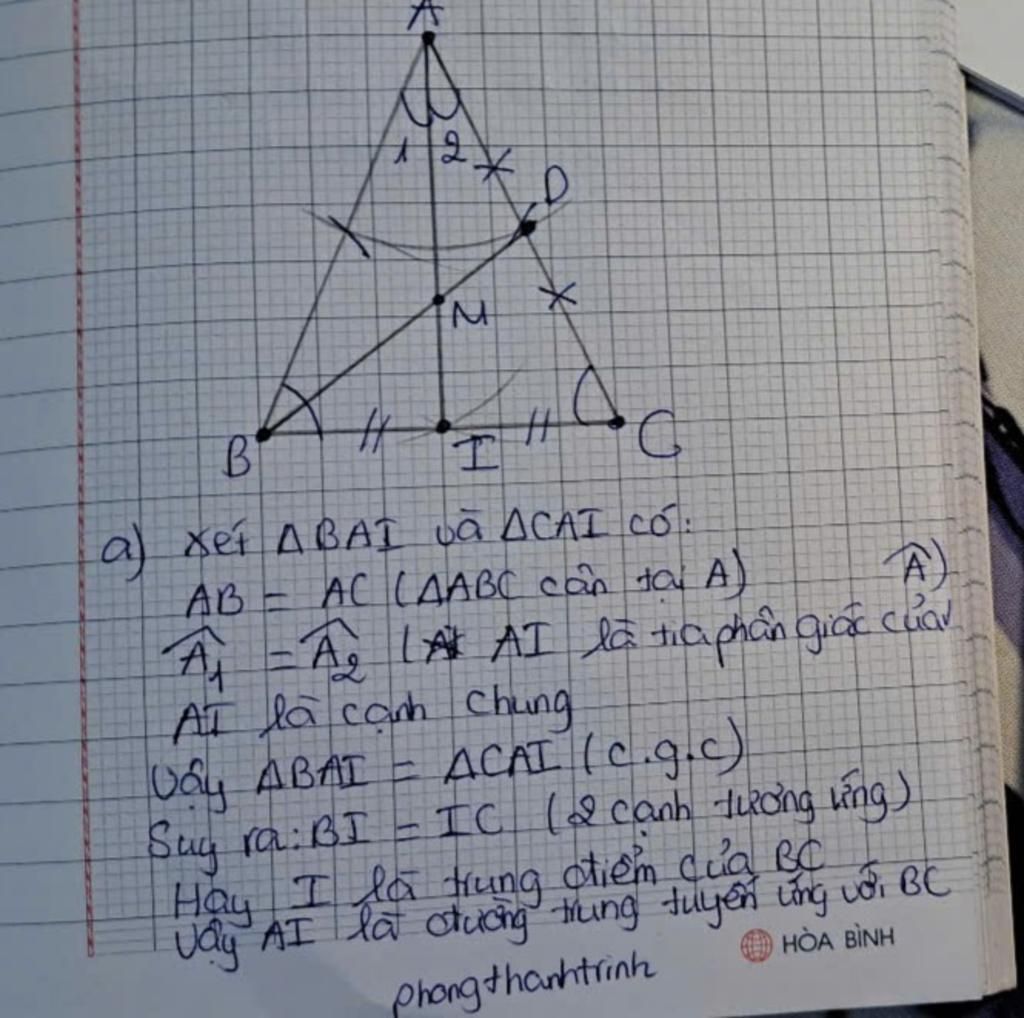 A
1 2
D
M
B I C
a) Xét ΔBAI và ΔCAI có:
AB = AC (ΔABC cân tại A)
Â₁ = Â₂ (AI là tia phân giác của Â)
AI là cạnh chung
Vậy ΔBAI = ΔCAI (c.g.c)
Suy ra: BI = IC (2 cạnh tương ứng)
Hay I là trung điểm của BC
Vậy AI là đường trung tuyến ứng với BC
HÒA BÌNH
phongthanhtrinh